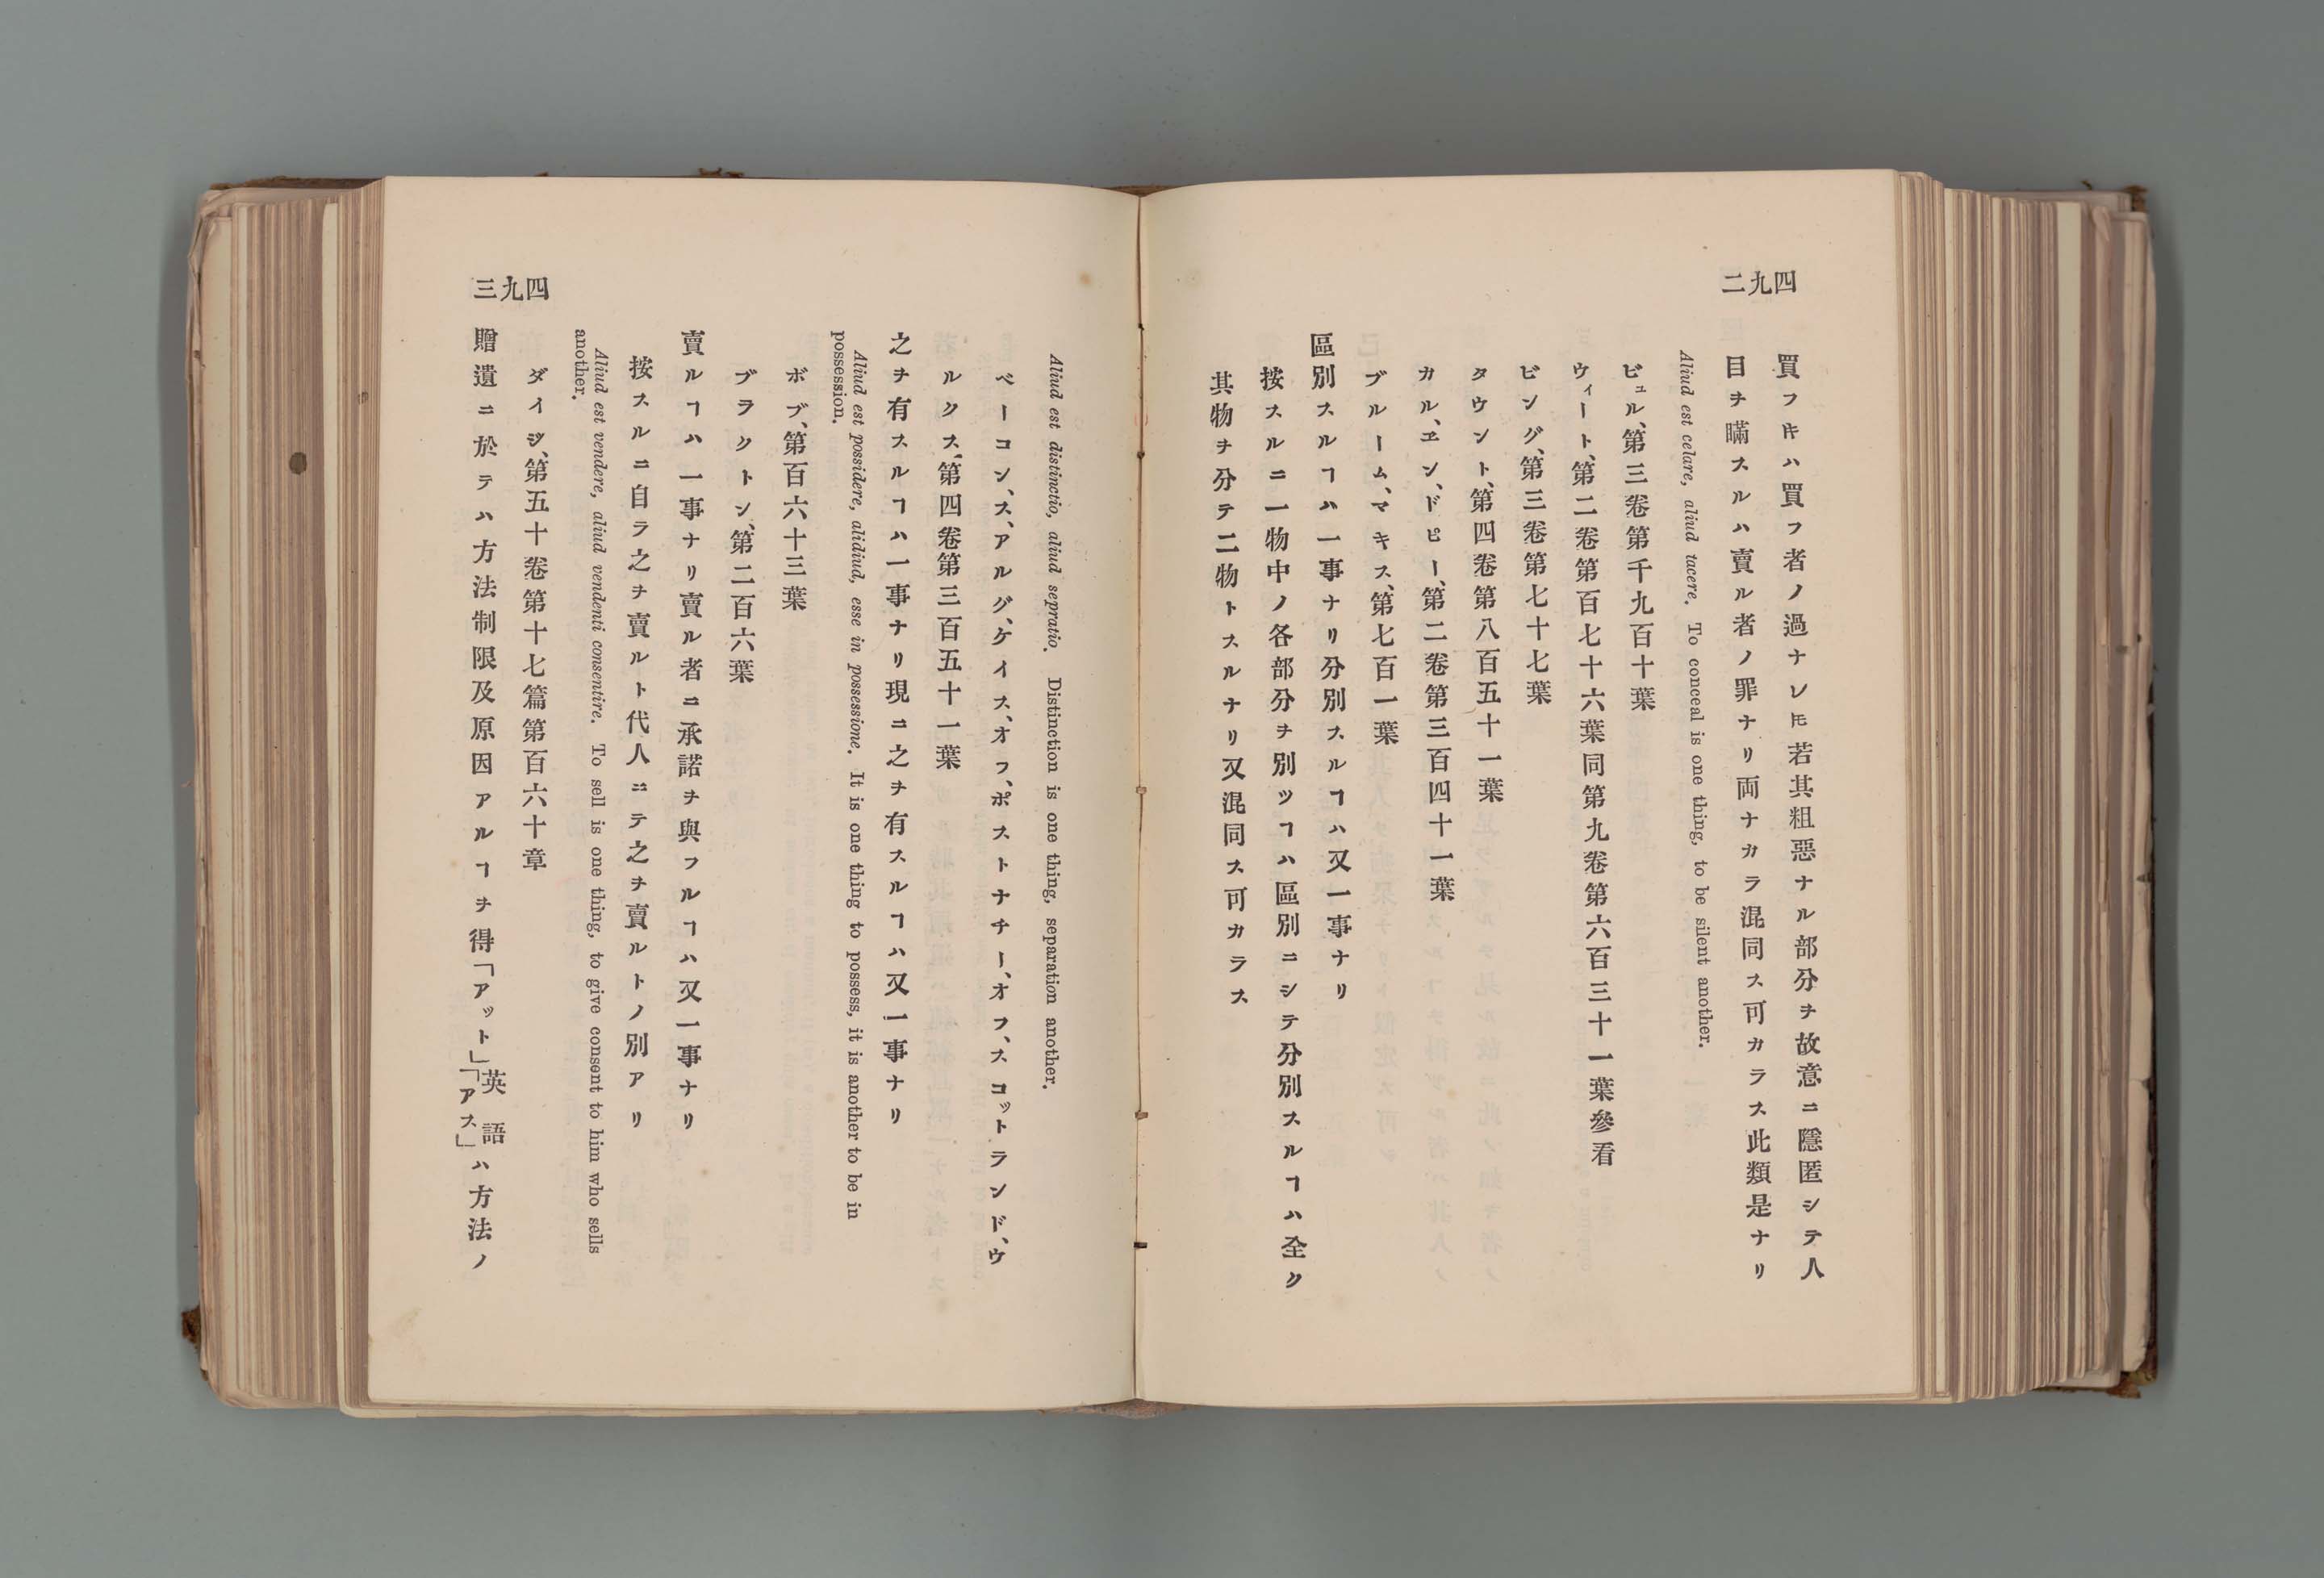 四九二
買フキハ買フ者ノ過ナレ𪜈若其粗惡ナル部分ヲ故意ニ隱匿シテ人
目ヲ瞞スルハ賣ル者ノ罪ナリ両ナカラ混同ス可カラス此類是ナリ
Aliud est celare, aliud tacere. To conceal is one thing, to be silent another.
ビュル、第三卷第千九百十葉
ウィート、第二卷第百七十六葉同第九卷第六百三十一葉參看
ビング、第三卷第七十七葉
タウント、第四卷第八百五十一葉
カル、ヱン、ドピー、第二卷第三百四十一葉
ブルーム、マキス、第七百一葉
區別スルヿハ一事ナリ分別スルヿハ又一事ナリ
按スルニ一物中ノ各部分ヲ別ツヿハ區別ニシテ分別スルヿハ全ク
其物ヲ分テ二物トスルナリ又混同ス可カラス
四九三
Aliud est distinctio, aliud sepratio. Distinction is one thing, separation another.
ベーコン、ス、アルグ、ケイス、オフ、ポストナチー、オフ、スコットランド、ウ
ルクス、第四卷第三百五十一葉
之ヲ有スルヿハ一事ナリ現ニ之ヲ有スルヿハ又一事ナリ
Aliud est possidere, alidiud, esse in possessione. It is one thing to possess, it is another to be in
possession.
ボブ、第百六十三葉
ブラクトン、第二百六葉
賣ルヿハ一事ナリ賣ル者ニ承諾ヲ與フルヿハ又一事ナリ
按スルニ自ラ之ヲ賣ルト代人ニテ之ヲ賣ルトノ別アリ
Aliud est vendere, aliud vendenti consentire. To sell is one thing, to give consent to him who sells
another.
ダイジ、第五十卷第十七篇第百六十章
贈遺ニ於テハ方法制限及原因アルヿヲ得「アット」英語「アス」ハ方法ノ